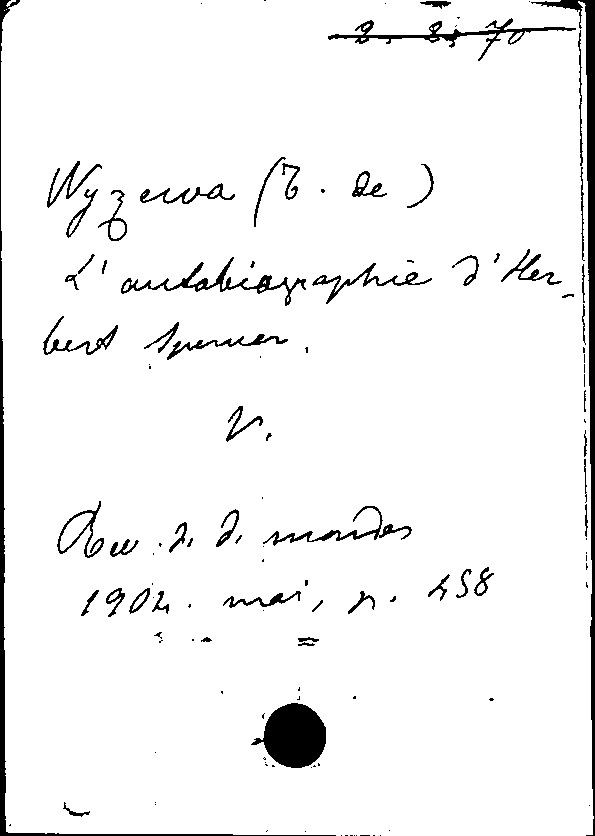 2. 2. 70
Wyzewa (T. de)
L'autobiographie d'Her-
bert Spencer.
V.
Rev. d. d. mondes
1904. mai, p. 458